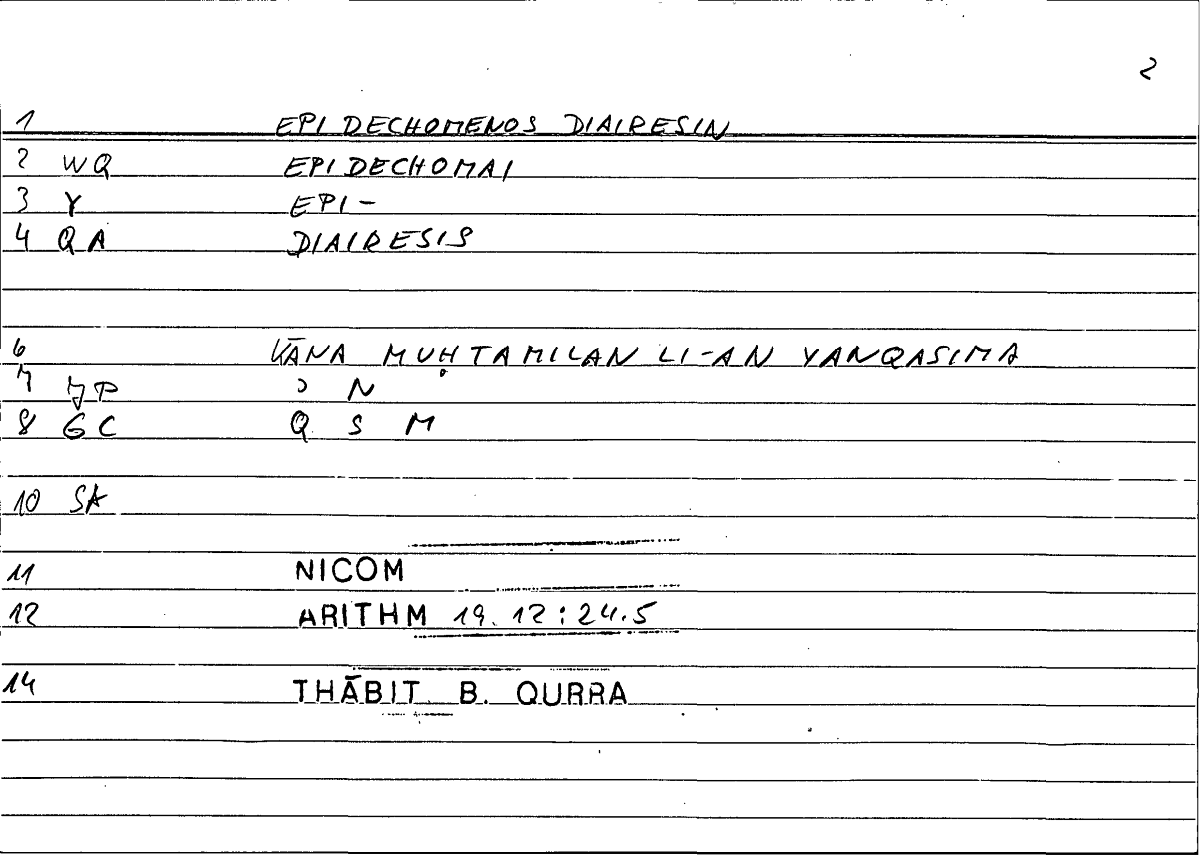 2
1 EPIDECHOMENOS DIAIRESIN
2 WQ EPIDECHOMAI
3 Y EPI-
4 QA DIAIRESIS
6 KĀNA MUḤTAMILAN LI-AN YANQASIMA
7 ʾ N
8 GC Q S M
10 SA
11 NICOM
12 ARITHM 19.12:24.5
14 THĀBIT B. QURRA